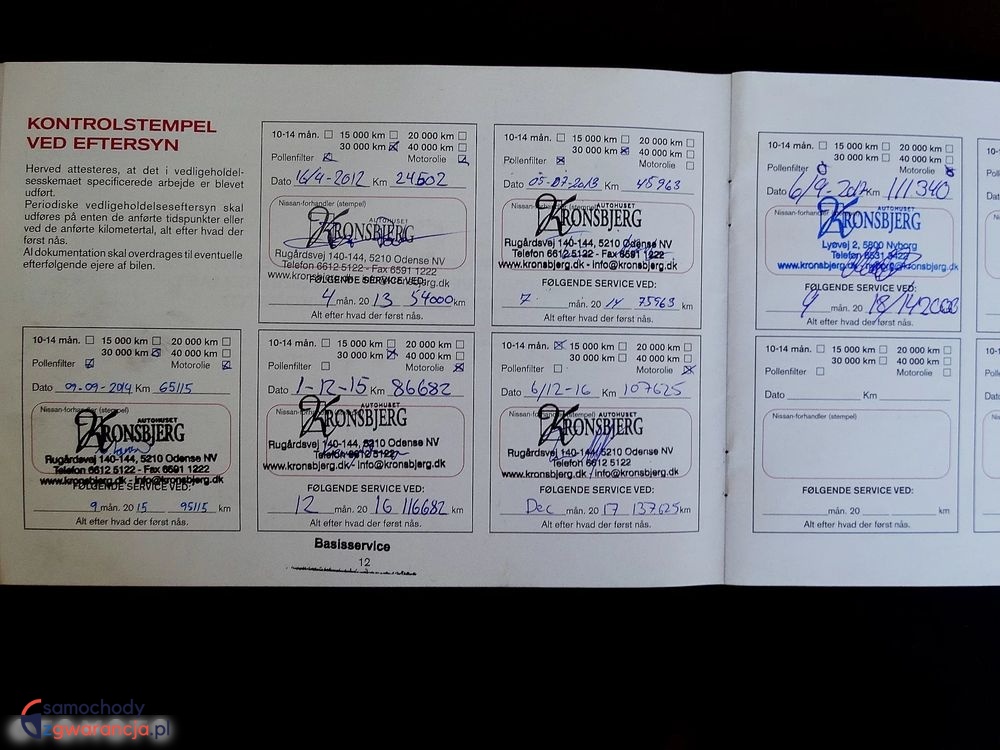 KONTROLSTEMPEL
VED EFTERSYN
Herved attesteres, at det i vedligeholdel-
sesskemaet specificerede arbejde er blevet
udført.
Periodiske vedligeholdelseseftersyn skal
udføres på enten de anførte tidspunkter eller
ved de anførte kilometertal, alt efter hvad der
først nås.
Al dokumentation skal overdrages til eventuelle
efterfølgende ejere af bilen.
10-14 mån. 15 000 km 20 000 km
30 000 km 40 000 km
Pollenfilter Motorolie
Dato 16/4-2012 Km 24502
Nissan-forhandler (stempel)
AUTOHUSET
KRONSBJERG
Rugårdsvej 140-144, 5210 Odense NV
Telefon 6612 5122 - Fax 6591 1222
www.kronsbjerg.dk
FØLGENDE SERVICE VED:
4 mån. 20 13 54000 km
Alt efter hvad der først nås.
10-14 mån. 15 000 km 20 000 km
30 000 km 40 000 km
Pollenfilter Motorolie
Dato 05-07-2013 Km 45963
Nissan-forhandler (stempel)
AUTOHUSET
KRONSBJERG
Rugårdsvej 140-144, 5210 Odense NV
Telefon 6612 5122 - Fax 6591 1222
www.kronsbjerg.dk - info@kronsbjerg.dk
FØLGENDE SERVICE VED:
7 mån. 20 14 75963 km
Alt efter hvad der først nås.
10-14 mån. 15 000 km 20 000 km
30 000 km 40 000 km
Pollenfilter Motorolie
Dato 6/9-2017 Km 111340
Nissan-forhandler (stempel)
AUTOHUSET
KRONSBJERG
Lyøvej 2, 5800 Nyborg
Telefon 6531 3422
www.kronsbjerg.dk
FØLGENDE SERVICE VED:
9 mån. 20 18/
Alt efter hvad der først nås.
10-14 mån. 15 000 km 20 000 km
30 000 km 40 000 km
Pollenfilter Motorolie
Dato 09-09-2014 Km 65115
Nissan-forhandler (stempel)
AUTOHUSET
KRONSBJERG
Rugårdsvej 140-144, 5210 Odense NV
Telefon 6612 5122 - Fax 6591 1222
www.kronsbjerg.dk - info@kronsbjerg.dk
FØLGENDE SERVICE VED:
9 mån. 20 15 95115 km
Alt efter hvad der først nås.
10-14 mån. 15 000 km 20 000 km
30 000 km 40 000 km
Pollenfilter Motorolie
Dato 1-12-15 Km 86682
AUTOHUSET
KRONSBJERG
Rugårdsvej 140-144, 5210 Odense NV
Telefon 6612 5122
www.kronsbjerg.dk - info@kronsbjerg.dk
FØLGENDE SERVICE VED:
12 mån. 20 16 116682 km
Alt efter hvad der først nås.
10-14 mån. 15 000 km 20 000 km
30 000 km 40 000 km
Pollenfilter Motorolie
Dato 6/12-16 Km 107625
AUTOHUSET
KRONSBJERG
Rugårdsvej 140-144, 5210 Odense NV
Telefon 6612 5122
www.kronsbjerg.dk - info@kronsbjerg.dk
FØLGENDE SERVICE VED:
Dec mån. 20 17 137625 km
Alt efter hvad der først nås.
10-14 mån. 15 000 km 20 000 km
30 000 km 40 000 km
Pollenfilter Motorolie
Dato Km
Nissan-forhandler (stempel)
FØLGENDE SERVICE VED:
mån. 20 km
Alt efter hvad der først nås.
Basisservice
12
samochody
zgwarancja.pl